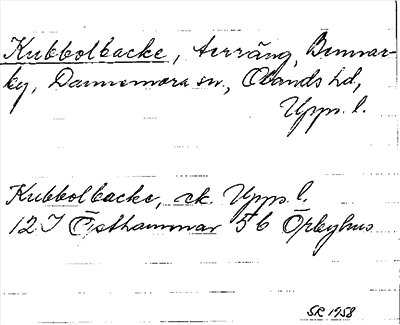 Kubbolbacke, terräng, Bennar-
by, Dannemora sn, Olands hd,
Upps. l.
Kubbolbacke, ek. Upps. l.
12 I Östhammar 5 b Örbyhus
SR 1958